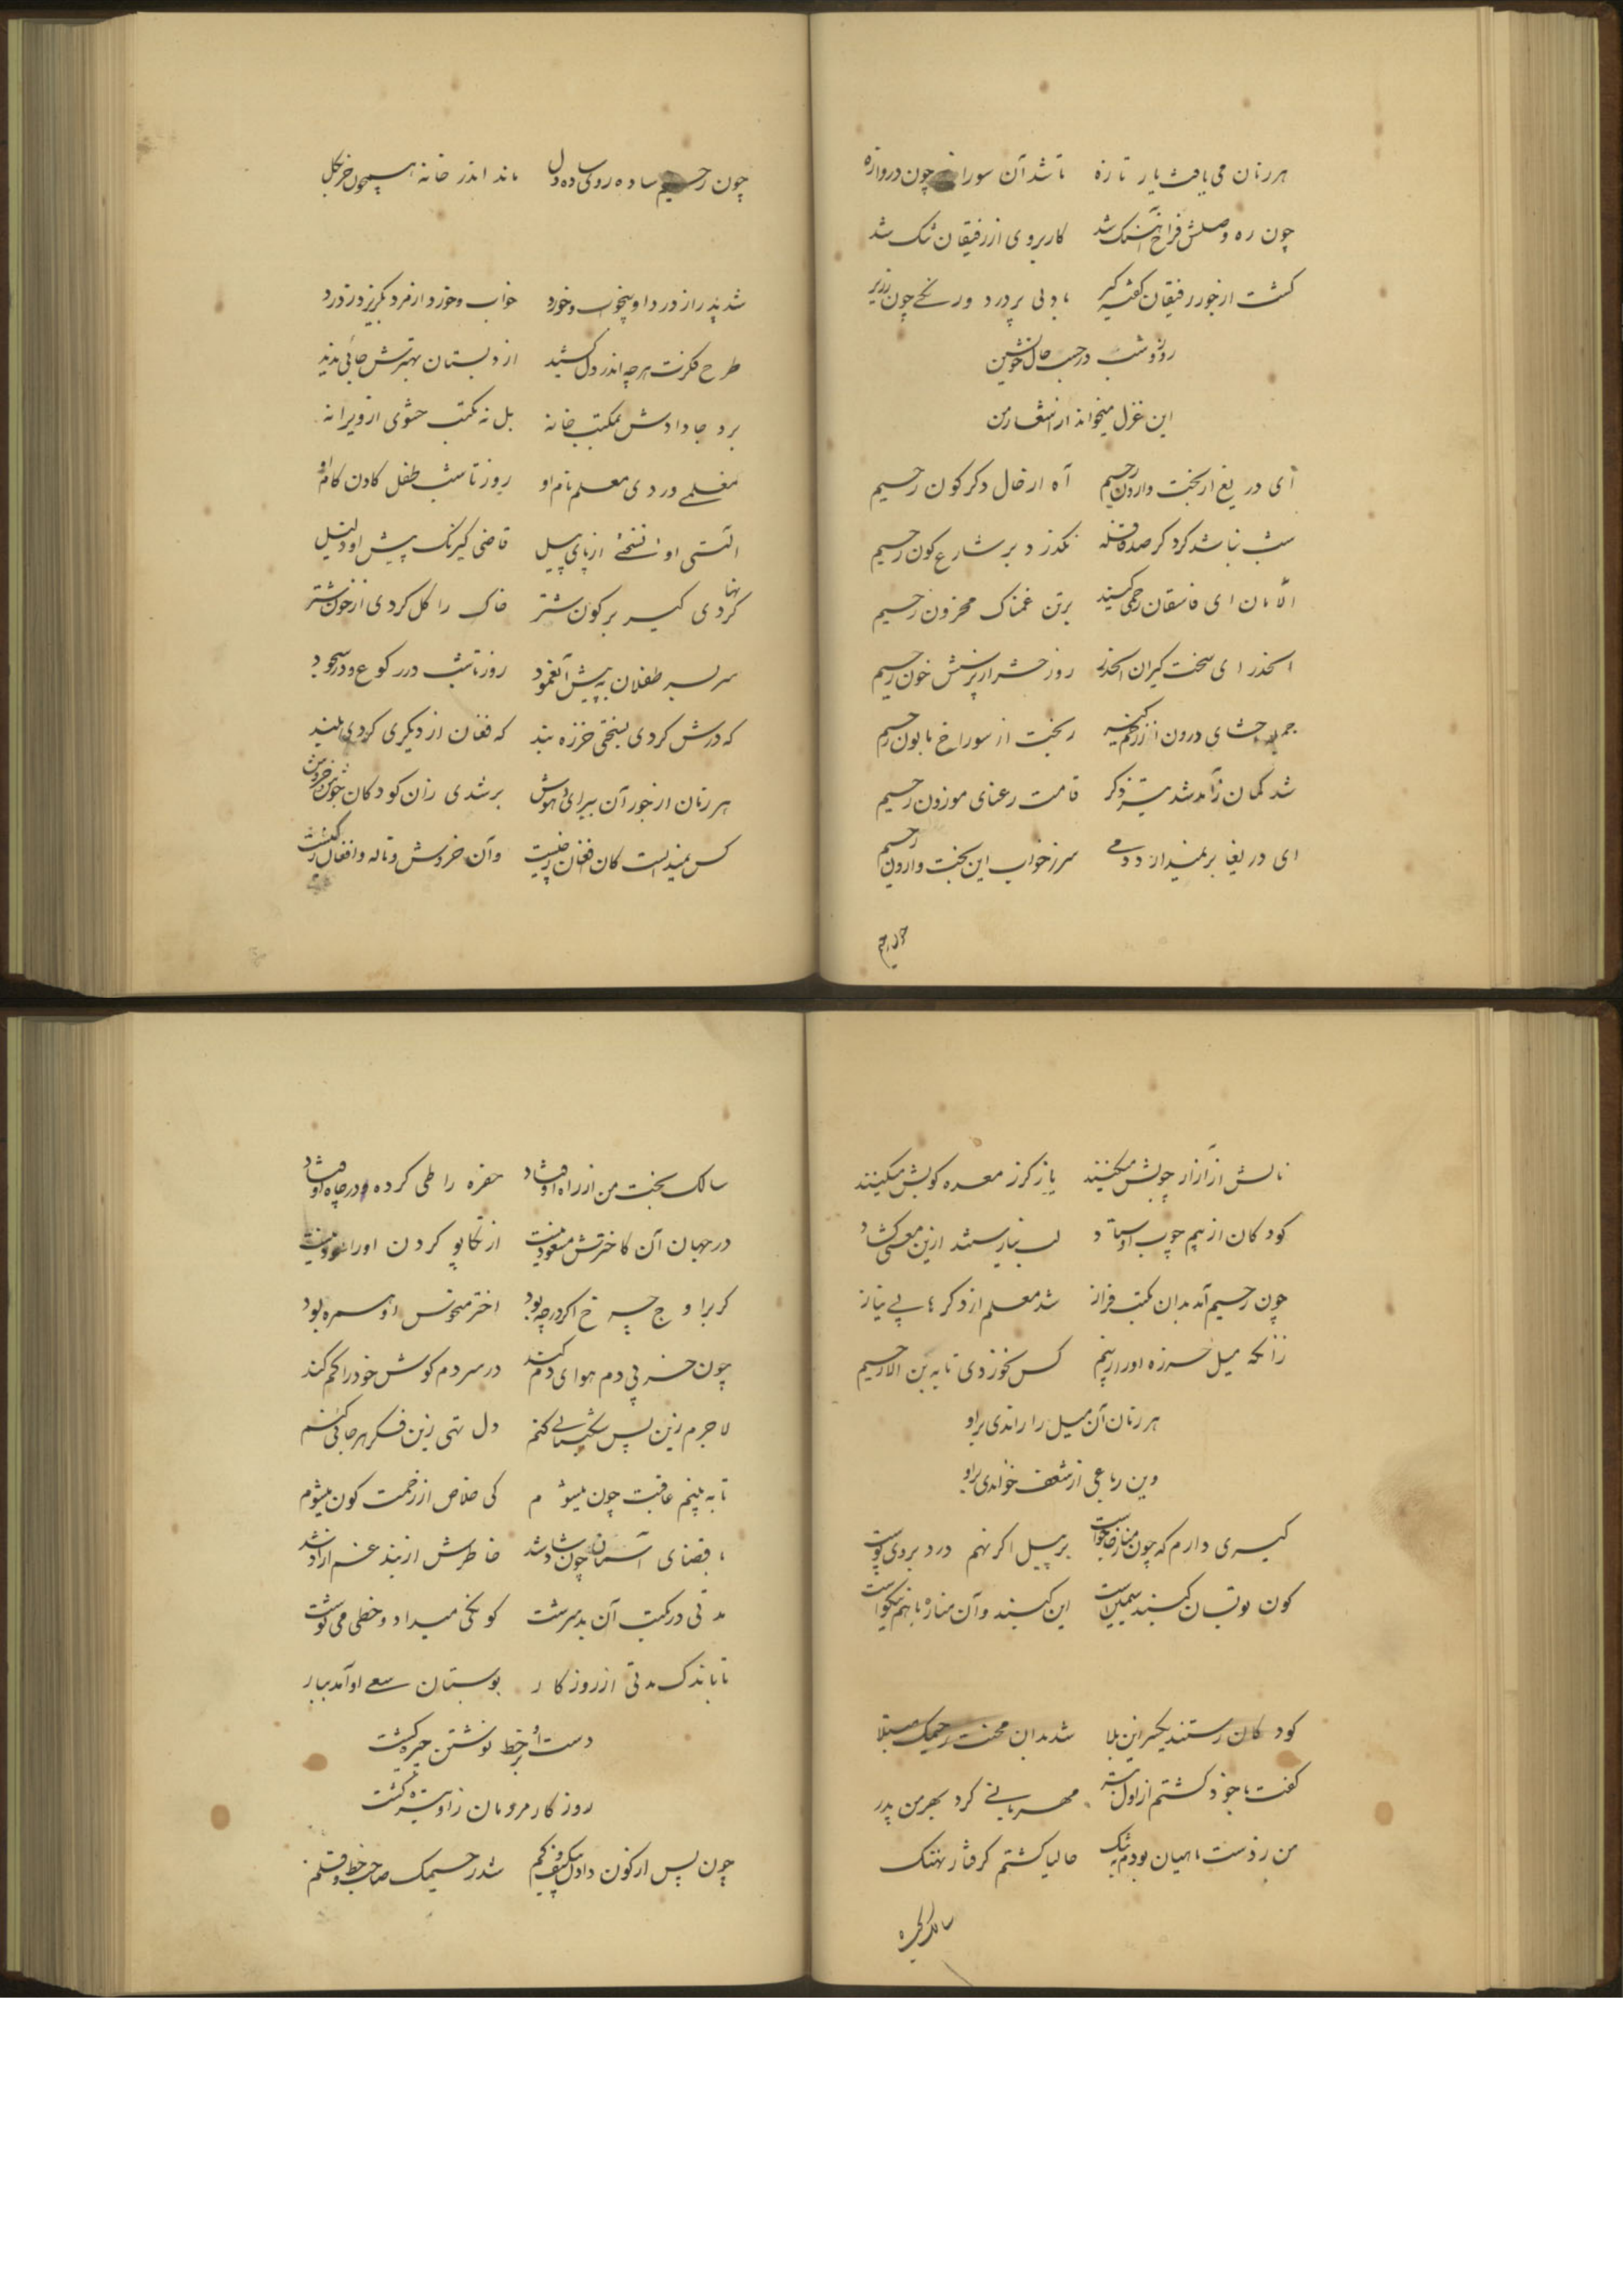 هر زمان می یافت یار تازه تا شد آن سوراخ چون دروازه
چون ره وصلش فراخ آهنگ شد کار بر وی از رفیقان تنک شد
کشت از جور رفیقان با دلی پر درد و رنجی چون زریر
روز و شب در حسب حال خویشتن
این غزل میخواند از اشعار من
ای دریغ از بخت وارون رحیم آه از حال دکرکون رحیم
شب نباشد کرد کر صد قافله نکذرد بر شارع کون رحیم
الامان ای فاسقان رحمی کنید بر تن غمناک محزون رحیم
الحذر ای سخت کیران الحذر روز حشر از پرسش خون رحیم
ریخت از سوراخ مابون رحیم
شد کمان ز آمد شد تیر ذکر قامت رعنای موزون رحیم
ای دریغا بر نمیدارد دمی سر ز خواب این بخت وارون رحیم
چون رحیم
چون رحیم ساده روی ساده دل ماند اندر خانه همچون خر بکل
شد پدر از درد او بیخواب و خورد خواب و خورد از مرد بکریزد ز درد
طرح فکرت هر چه اندر دل کشید از دبستان بهترش جائی ندید
برد جا دادش بمکتب خانه بل نه مکتب حشوی از ویرانه
مغلمی در وی معلم نام او روز تا شب طفل کادن کام او
آلتی او نسختی از پای پیل قاضی کیرنک پیش او دخیل
کردی کیر بر کون شتر خاک را کل کردی از خون شتر
سر بسر طفلان به پیش آنعمود روز تا شب در رکوع و در سجود
که درش کردی بسختی خرزه بند که فغان از دیکری کردی بلند
هر زمان از جور آن پیر بیهوش بر شدی زان کودکان جوش و خروش
کس نمیدانست کان افغان ز چیست وآن خروش و ناله و افغان ز کیست
نالش از آزار چوبش میکنند یا ز کرز معده کوبش میکنند
کودکان از بیم چوب اوستاد لب نیارستند ازین معنی کشاد
چون رحیم آمد بدان مکتب فراز شد معلم از دکرها بی نیاز
زانکه میل خرزه او را ز بیم کس نخوردی تا به بن الا رحیم
هر زمان آن میل را راندی بر او
وین رباعی از شعف خواندی بر او
کیری دارم که چون منار خاجواست بر پیل اکر نهم درد بر وی پوست
کون تو بسان کنبد سیمین است این کنبد وآن مناره با هم نیکوست
کودکان رستند یکسر زین بلا شد بدان محنت رحیمک مبتلا
کفت با خود کشتم از اول بتر مهربانی کرد بهر من پدر
من ز دست ماهیان بودم به تنک حالیا کشتم کرفتار نهنک
سالک بخت
سالک بخت من از راه اوفتاد حفره را طی کرده در چاه اوفتاد
در جهان آن کاخترش مسعود نیست از تکاپو کردن او را سود نیست
کر بر اوج چرخ اکر در چه بود اختر منحوس او همره بود
چون خر بی دم هوای دم کند در سر دم کوش خود را کم کند
لاجرم زین پس شکیبائی کنم دل تهی زین فکر هر جائی کنم
تا به بینم عاقبت چون میشوم کی خلاص از زحمت کون میشوم
با قضای آسمان چون شاد شد خاطرش از بند غم آزاد شد
مدتی در مکتب آن بد سرشت کونکی میداد و خطی می نوشت
تا باندک مدتی از روزکار بوستان سعی او آمد ببار
دست او بر خط نوشتن چیره کشت
روزکار مردمان زو تیره کشت
چون پس از کون دادن شد رحیمک صاحب خط و قلم